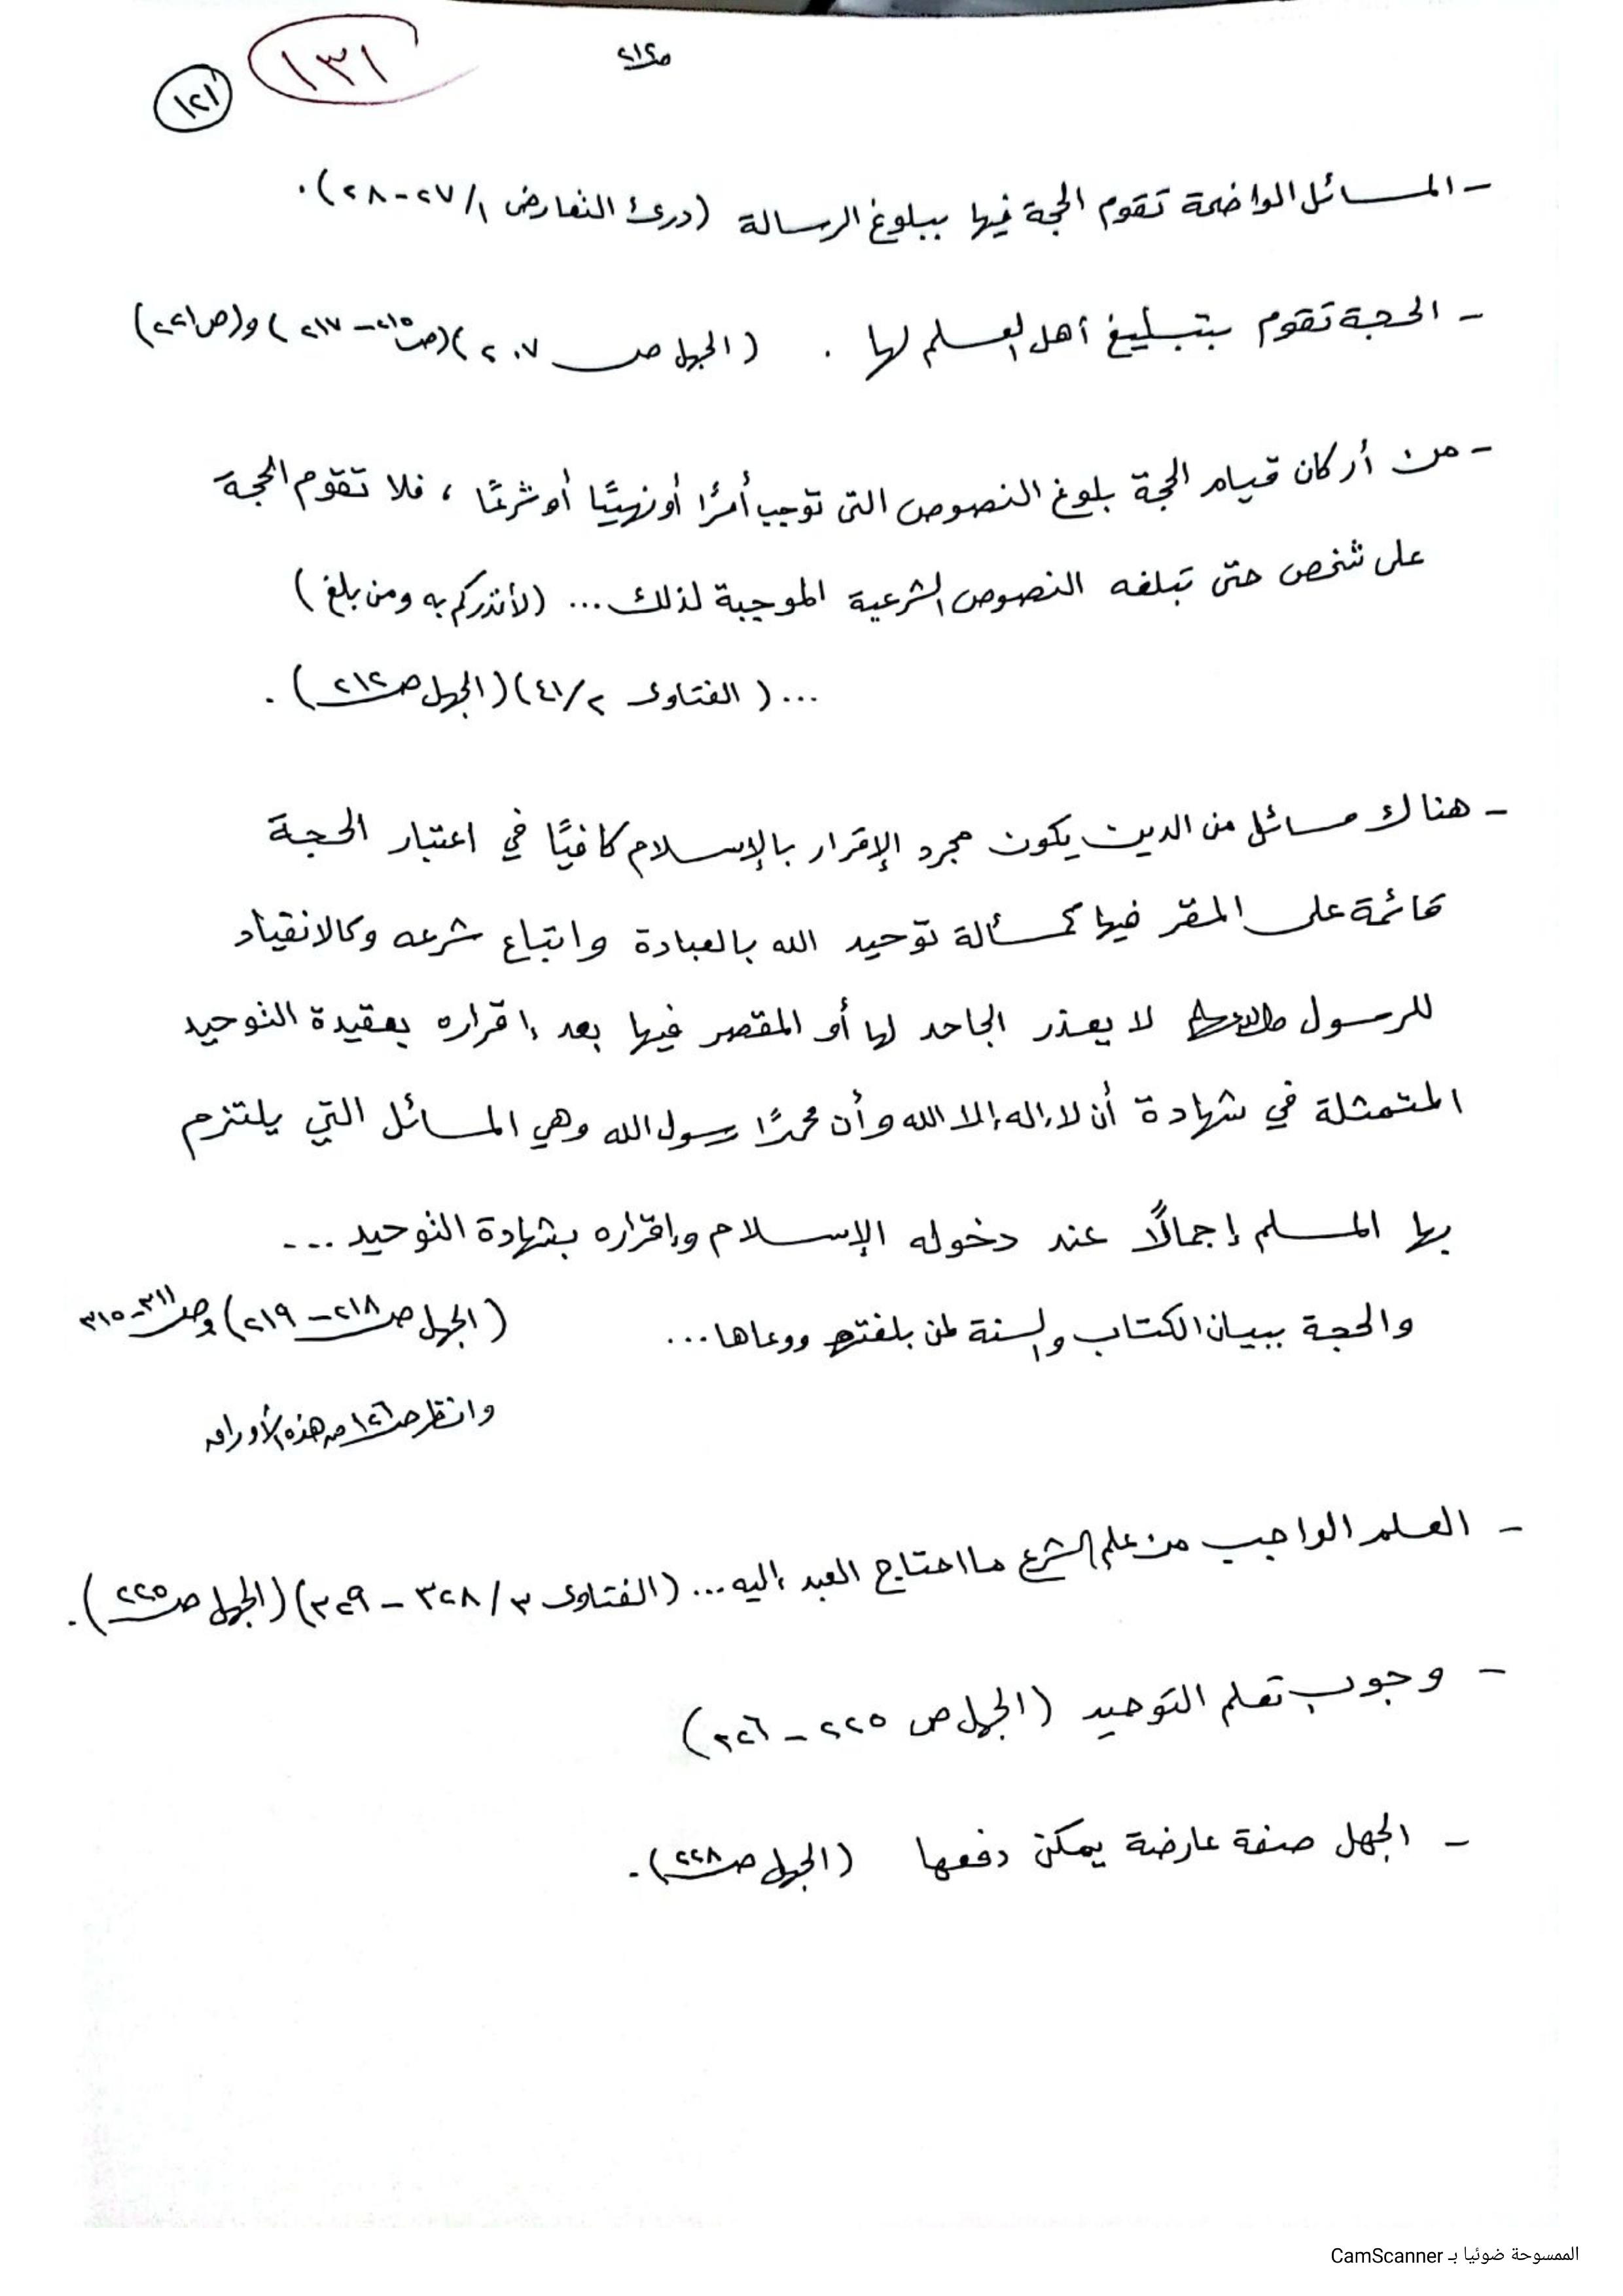 ص٢١٢
١٣١
١٢١
- المسائل الواضحة تقوم الحجة فيها ببلوغ الرسالة (درئ التعارض ١/ ٢٧-٢٨).
- الحجة تقوم بتبليغ أهل العلم لها . (الجهل ص ٢٠٧)(ص٢١٥-٢١٧) و(ص٢٢١)
- من أركان قيام الحجة بلوغ النصوص التي توجب أمرًا أو نهيًا أو شرعًا ، فلا تقوم الحجة
على شخص حتى تبلغه النصوص الشرعية الموجبة لذلك ... (لأنذركم به ومن بلغ)
... (الفتاوى ٢/ ٤١)(الجهل ص٢١٢) .
- هناك مسائل من الدين يكون مجرد الإقرار بالإسلام كافيًا في اعتبار الحجة
قائمة على المقر فيها كمسألة توحيد الله بالعبادة واتباع شرعه وكالانقياد
للرسول لا يعذر الجاحد لها أو المقصر فيها بعد إقراره بعقيدة التوحيد
المتمثلة في شهادة أن لا إله إلا الله وأن محمدًا رسول الله وهي المسائل التي يلتزم
بها المسلم إجمالًا عند دخوله الإسلام وإقراره بشهادة التوحيد ...
والحجة ببيان الكتاب والسنة لمن بلغته ووعاها ... (الجهل ص٢١٨-٢١٩) وص٣١١-٣١٥
وانظر ص١٢٦ من هذه الأوراق
- العلم الواجب من علم الشرع ما احتاج العبد إليه ... (الفتاوى ٣/ ٣٢٨-٣٢٩)(الجهل ص٢٢٥).
- وجوب تعلم التوحيد (الجهل ص ٢٢٥-٢٢٦)
- الجهل صفة عارضة يمكن دفعها (الجهل ص٢٢٨).
الممسوحة ضوئيا بـ CamScanner